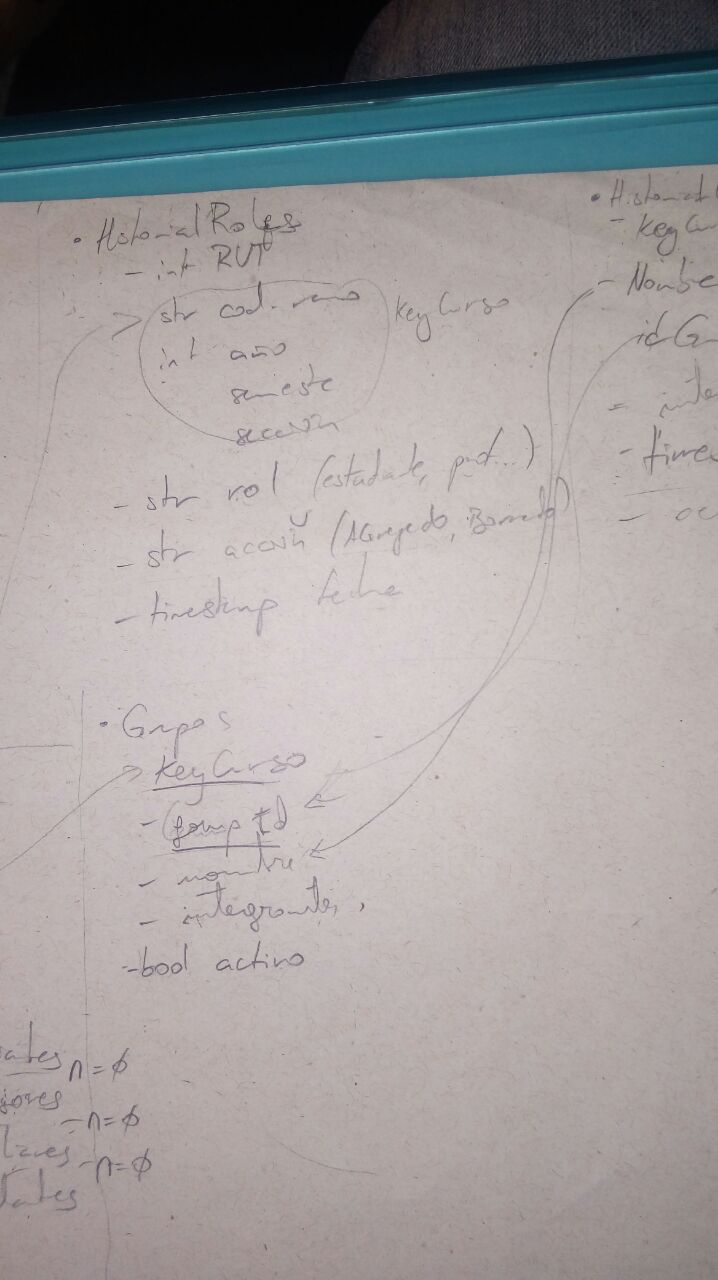 • Historial Roles
- int RUT
str cod. ramo
KeyCurso
int año
semestre
sección
- str rol (estudiante, prof...)
- str acción (Agregado, Borrado)
- timestamp fecha
• Grupos
KeyCurso
- Group Id
- nombre
- integrantes,
- bool activo
• Historial
- Key
- Nombre
id G
-
- time
-
n = ϕ
- n = ϕ
- n = ϕ